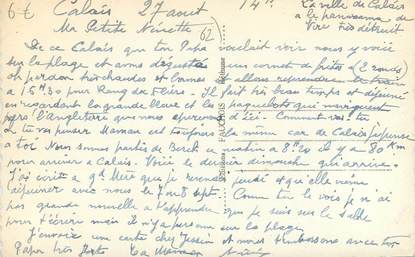 6€ Calais 27 août 14h. La ville de Calais
Ma Petite Nénette a le panorama de
62 très détruit
De ce Calais que ton Papa voulait voir nous y voici
sur la plage et avons dégusté un cornet de frites (2 ronds)
oh pardon très chaudes et bonnes et allons reprendre le train
à 16h30 pour Rang de Fliers. Il fait très beau temps et déjeuné
en regardant la grande bleue et les paquebots qui naviguent
vers l'Angleterre que nous apercevons d'ici. Comment vas tu
tu vas penser Maman est toujours la même car de Calais je pense
à toi. Nous sommes partis de Berck ce matin à 8h20 il y a 80 km
pour arriver à Calais. Voici le dernier dimanche qui arrive.
J'ai écrit à gd Mère que je
déjeuner avec nous le 7 ou 8 sept. Comme tu le vois je n'ai
pas grande nouvelle à t'apprendre que je suis sur le sable
pour t'écrire mais il n'y a personne sur la plage
J'envoie une carte chez et nous t'embrassons
Papa très fort. Ta Maman